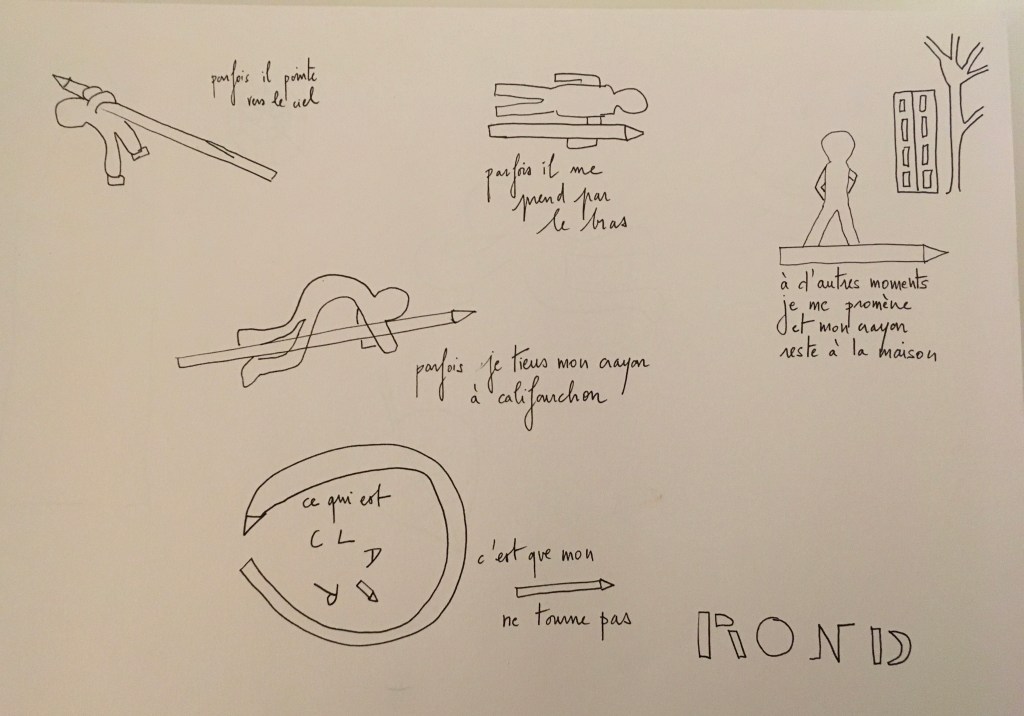 parfois il pointe
vers le ciel
parfois il me
prend par
le bras
à d'autres moments
je me promène
et mon crayon
reste à la maison
parfois je tiens mon crayon
à califourchon
ce qui est
C L
D
R
c'est que mon
ne tourne pas
ROND